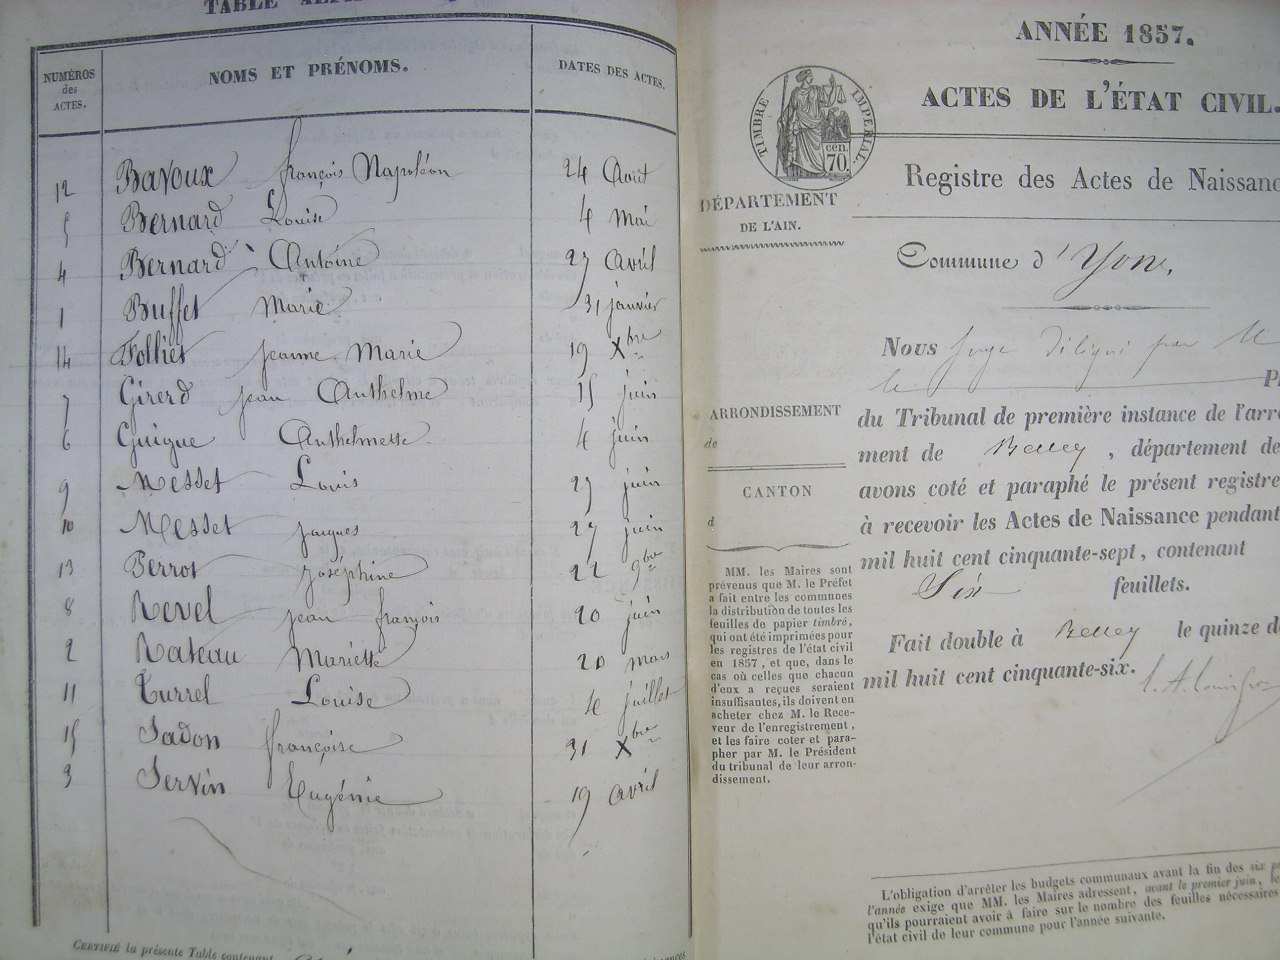 TABLE
NUMÉROS des ACTES. NOMS ET PRÉNOMS. DATES DES ACTES.
12 Bavoux françois Napoléon 24 Aout
5 Bernard Louise 4 Mai
4 Bernard Antoine 27 avril
1 Buffet Marie 31 janvier
14 Folliet jeanne Marie 19 Xbre
7 Girerd jean Anthelme 15 juin
6 Guigue Anthelmette 4 juin
9 Messet Louis 27 juin
10 Messet jacques 27 juin
13 Perrot joséphine 22 9bre
8 Revel jean françois 20 juin
2 Rateau Mariette 20 mars
11 Turrel Louise 4 juillet
15 Sadon françoise 31 Xbre
3 Servin Eugénie 19 avril
CERTIFIÉ la présente Table contenant
ANNÉE 1857.
ACTES DE L'ÉTAT CIVIL.
TIMBRE IMPÉRIAL.
70 cen.
DÉPARTEMENT
DE L'AIN.
Registre des Actes de Naissanc
Commune d'Yon,
Nous juge
le P
du Tribunal de première instance de l'arro
ment de Belley, département de
avons coté et paraphé le présent registre
à recevoir les Actes de Naissance pendant
mil huit cent cinquante-sept, contenant
Six feuillets.
Fait double à Belley le quinze d
mil huit cent cinquante-six.
ARRONDISSEMENT
de
CANTON
d
MM. les Maires sont
prévenus que M. le Préfet
a fait entre les communes
la distribution de toutes les
feuilles de papier timbré,
qui ont été imprimées pour
les registres de l'état civil
en 1857, et que, dans le
cas où celles que chacun
d'eux a reçues seraient
insuffisantes, ils doivent en
acheter chez M. le Rece-
veur de l'enregistrement,
et les faire coter et para-
pher par M. le Président
du tribunal de leur arron-
dissement.
L'obligation d'arrêter les budgets communaux avant la fin des six p
l'année exige que MM. les Maires adressent, avant le premier juin, le
qu'ils pourraient avoir à faire sur le nombre des feuilles nécessaires
l'état civil de leur commune pour l'année suivante.